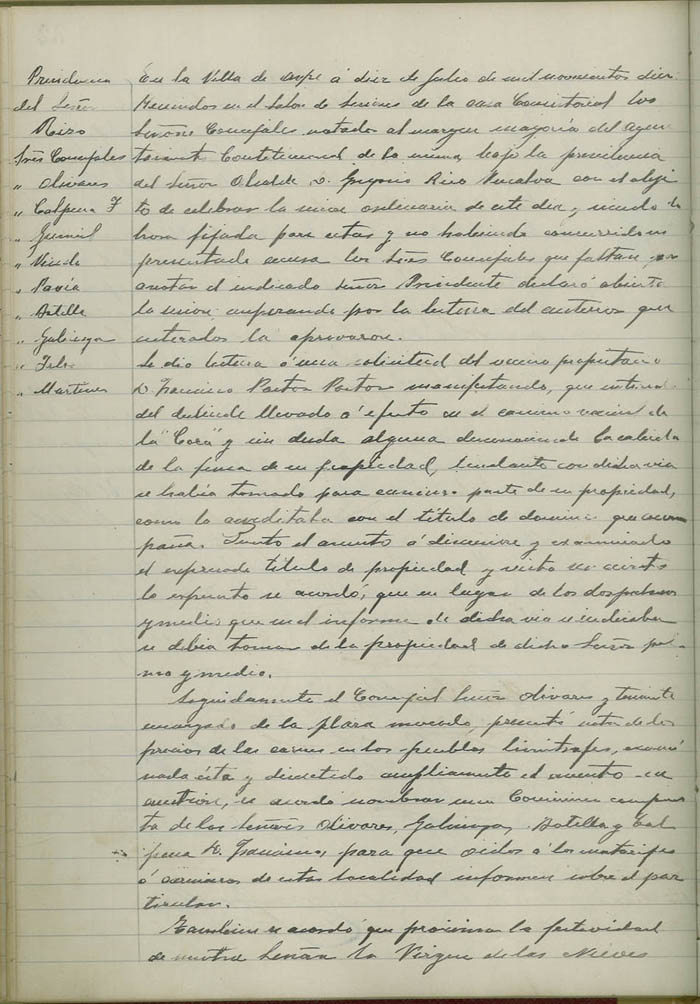 Presidencia
del Señor
Rizo
Sres Concejales
" Olivares
" Calpena F
" Jumil
" Vicedo
" Pavía
" Botella
" Galinsoga
" Martinez
En la Villa de Aspe á diez de Julio de mil novecientos diez
Reunidos en el Salon de Sesiones de la casa Consistorial los
Señores Concejales notados al margen mayoria del Ayun
tamiento Constitucional de la misma bajo la presidencia
del Señor Alcalde D. Gregorio Rizo con el obje
to de celebrar la sesion ordinaria de este dia, siendo la
hora fijada para estas y no habiendo concurrido ni
presentado excusa los Sres Concejales que faltan por
anotar el indicado Señor Presidente declaró abierta
la sesion empezando por la lectura del anterior que
enterados la aprovaron.
Se dio lectura á una solicitud del vecino propietario
D. Francisco Pastor Pastor manifestando, que
del deslinde llevado á efecto en el camino vecinal de
la "Coca" y sin duda alguna desconociendo la cabida
de la finca de su propiedad, lindante con dicha via
se habia tomado para camino parte de su propiedad,
como lo acreditaba con el titulo de dominio que acom
paña. Puesto el asunto á discusion y examinado
el expresado titulo de propiedad y visto ser cierto
lo expuesto se acordó, que en lugar de los dos palmos
y medio que en el informe de dicha via se indicaba
se debia tomar de la propiedad de dicho Señor pal
mo y medio.
Seguidamente el Concejal Señor Olivares y teniente
encargado de la plaza mercado, presentó nota de los
precios de las carnes en los pueblos limitrofes, exami
nada ésta y discutido ampliamente el asunto en
cuestion, se acordó nombrar una Comision compues
ta de los Señores Olivares, Galinsoga, Botella y Cal
pena D. Francisco, para que oidos á los matarifes
ó carniceros de esta localidad informen sobre el par
ticular.
Tambien se acordó que proxima la festividad
de nuestra Señora la Virgen de las Nieves